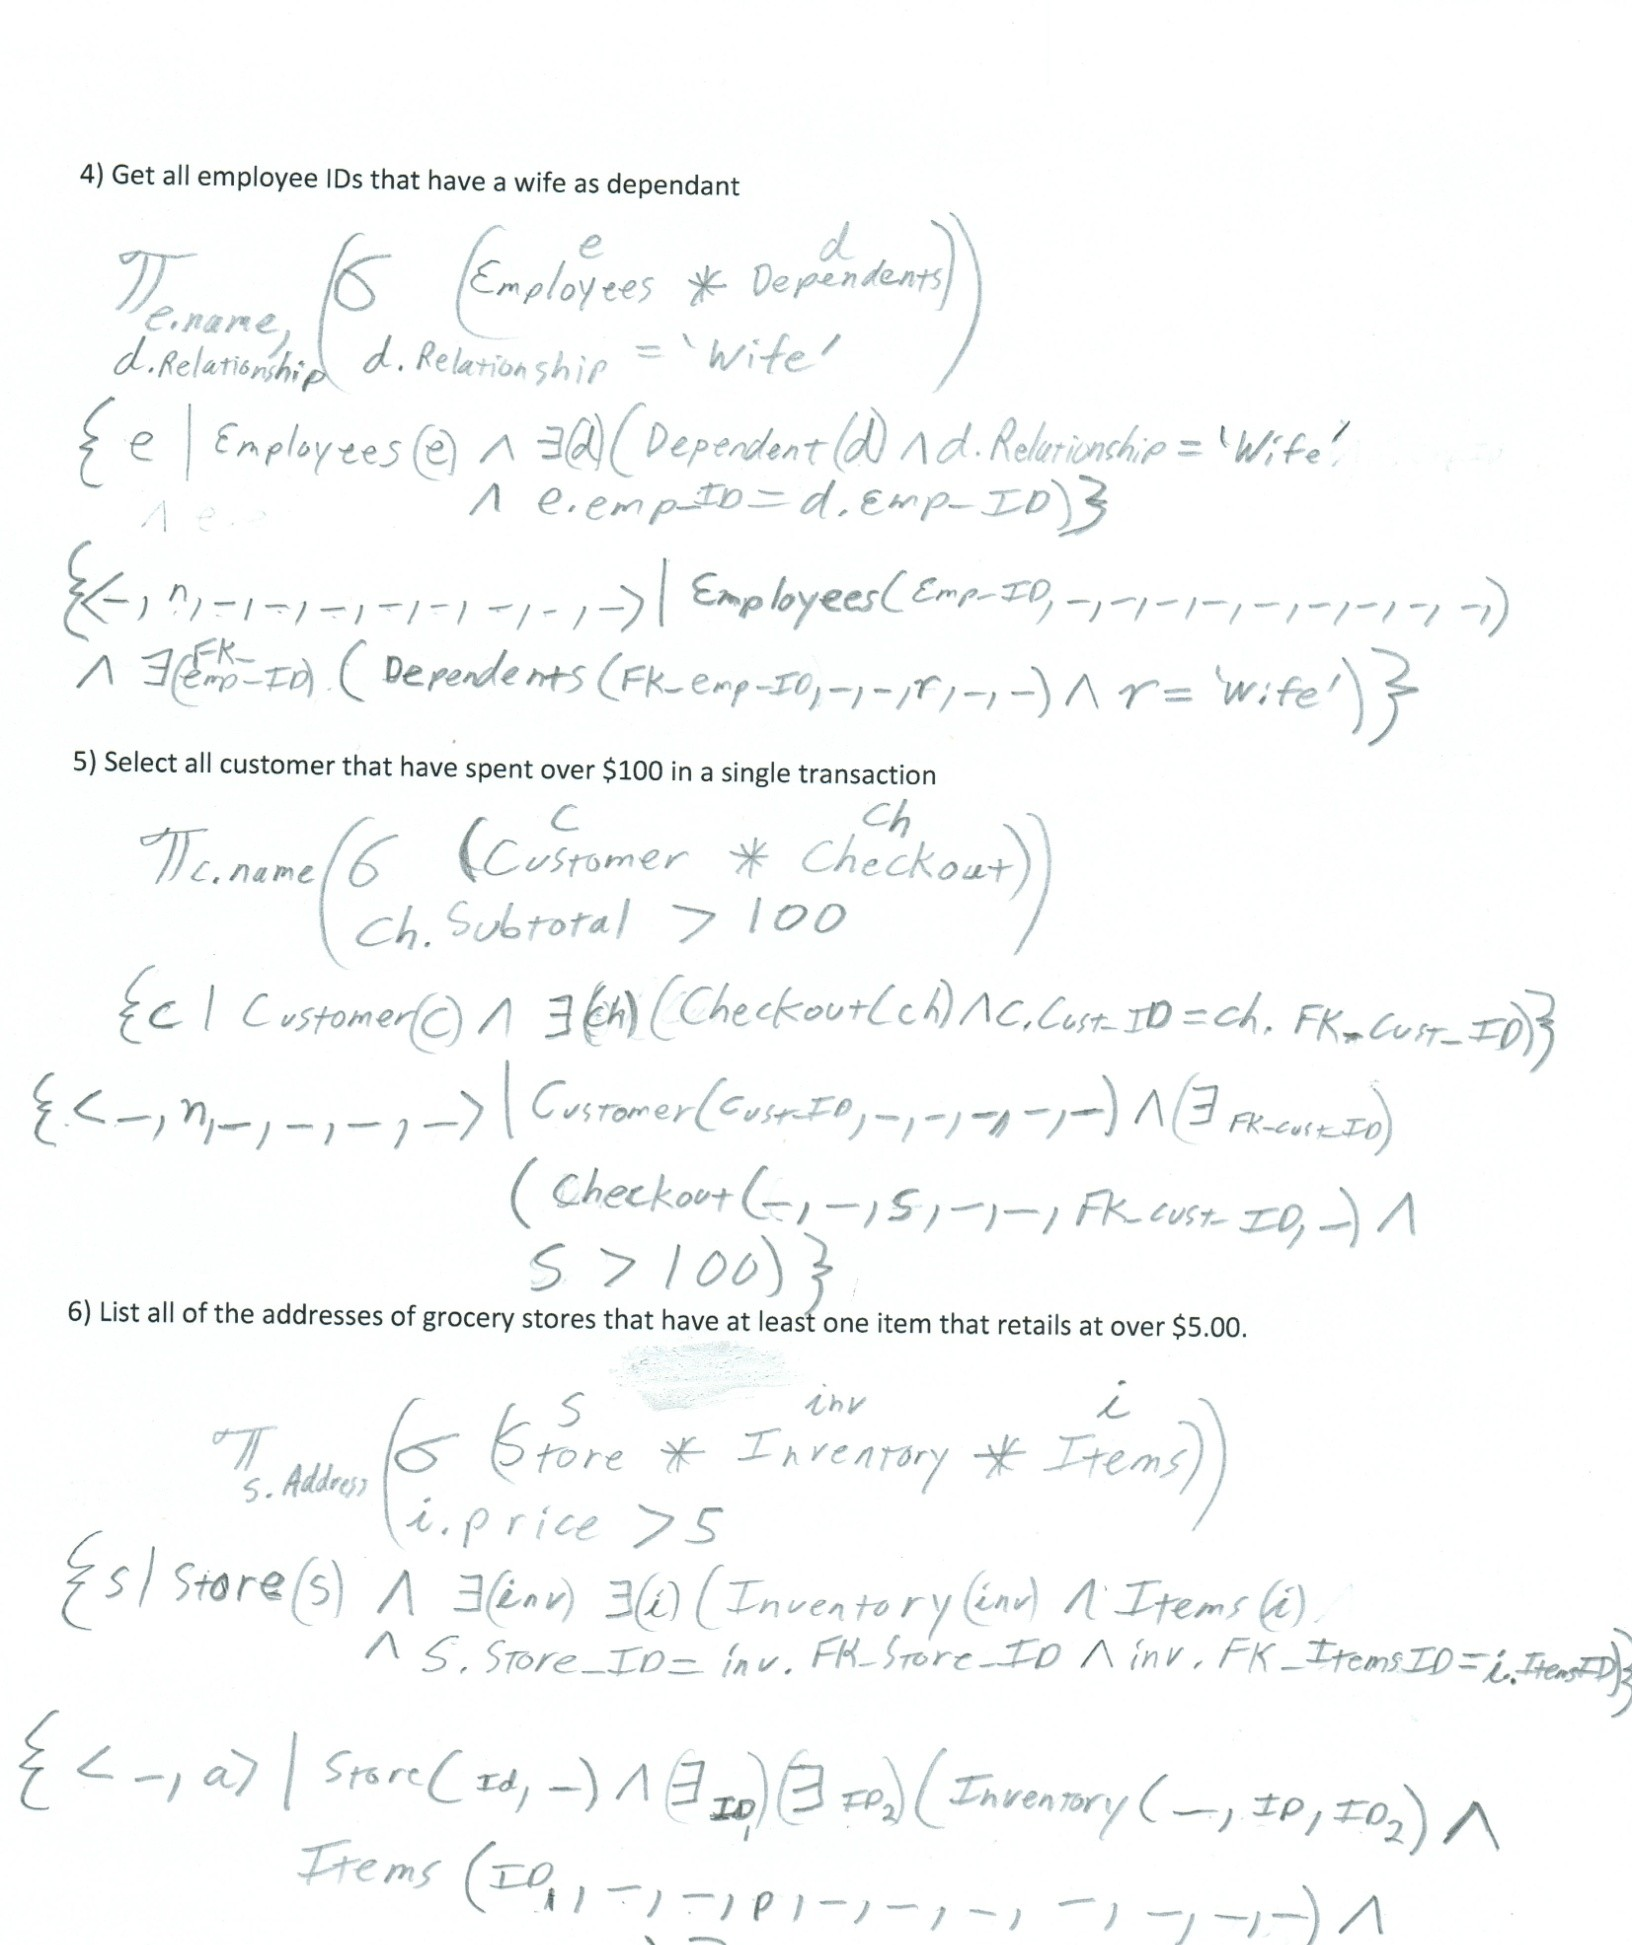 4) Get all employee IDs that have a wife as dependant
e d
π e.name, d.Relationship (σ (Employees * Dependents))
d.Relationship = 'Wife'
{e | Employees(e) ∧ ∃(d)(Dependent(d) ∧ d.Relationship = 'Wife'
∧ e.emp_ID = d.Emp_ID)}
{<_, n, _, _, _, _, _, _, _, _> | Employees(Emp_ID, _, _, _, _, _, _, _, _, _)
∧ ∃(FK_emp_ID) (Dependents (FK_emp_ID, _, _, r, _, _) ∧ r = 'wife')}
5) Select all customer that have spent over $100 in a single transaction
c ch
π c.name (σ (Customer * Checkout))
Ch. Subtotal > 100
{c | Customer(c) ∧ ∃(ch)(Checkout(ch) ∧ c.Cust_ID = ch. FK_Cust_ID)}
{<_, n, _, _, _, _> | Customer(Cust_ID, _, _, _, _, _) ∧ (∃ FK_cust_ID)
(Checkout(_, _, s, _, _, FK_cust_ID, _) ∧
s > 100)}
6) List all of the addresses of grocery stores that have at least one item that retails at over $5.00.
s inv i
π s.Address (σ (Store * Inventory * Items))
i.price > 5
{s | Store(s) ∧ ∃(inv) ∃(i) (Inventory(inv) ∧ Items(i)
∧ S.Store_ID = inv. FK_Store_ID ∧ inv. FK_ItemsID = i.ItemsID)}
{<_, a> | Store(Id, _) ∧ (∃ ID1)(∃ ID2)(Inventory(_, ID, ID2) ∧
Items (ID1, _, _, p, _, _, _, _, _, _, _) ∧